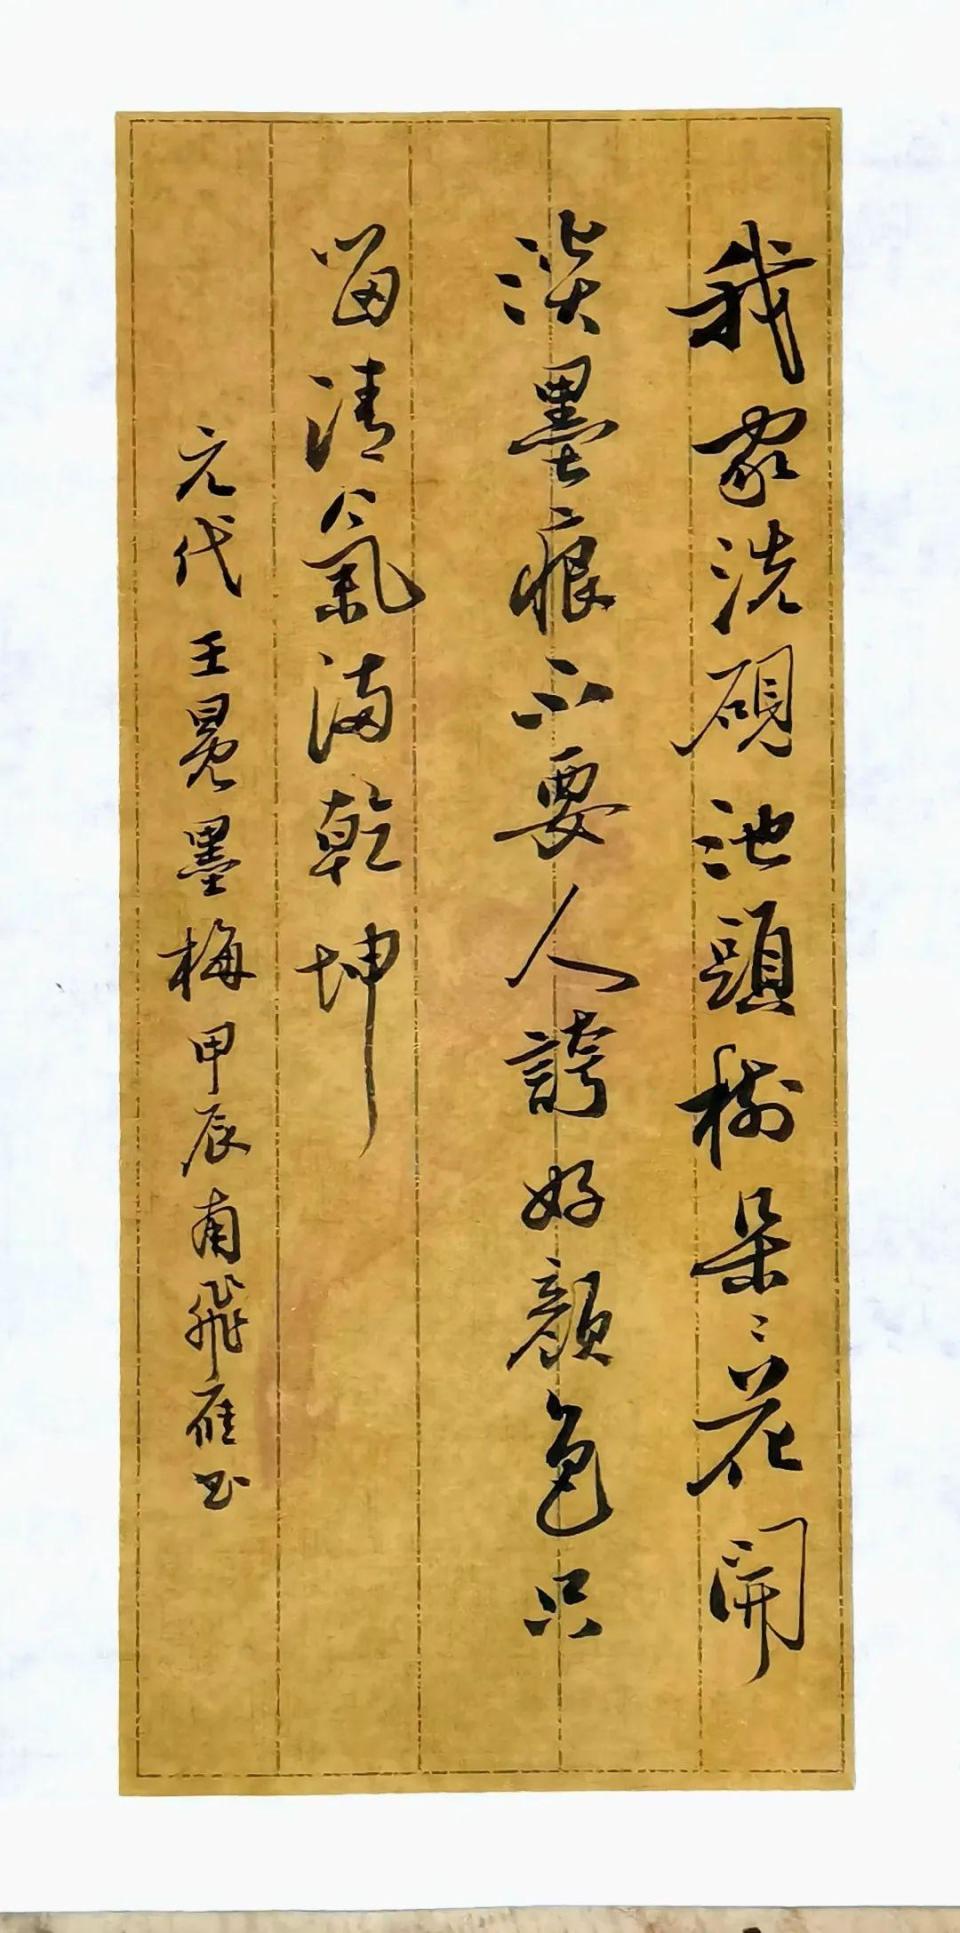 我家洗硯池頭樹朵〻花開
淡墨痕不要人誇好顔色只
留清氣滿乾坤
元代王冕墨梅甲辰南飛雁书